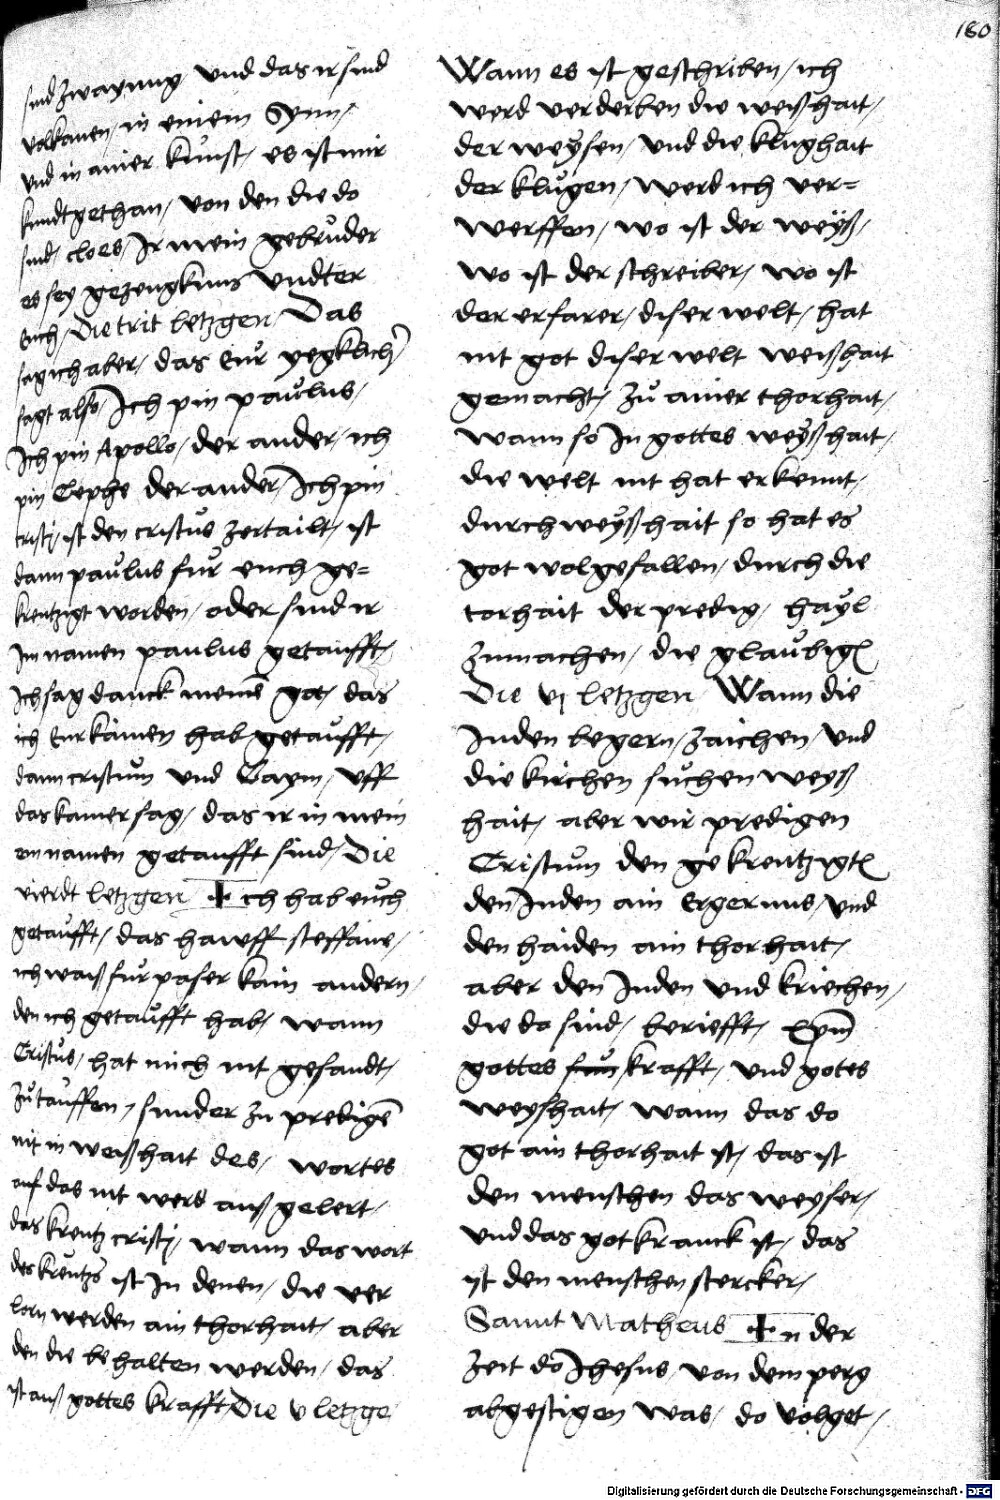 180
sind zwayung und das ir sind
volkomen / in einem Synn /
und in ainer kunst / es ist mir
kundt gethan / von den die do
sind / cloes / Ir mein gebruder
es sey gezengknus undter
Euch / Die trit letzgen / Das
sag ich aber / das Eur yegklich
sagt also / Ich pin paulus /
Ich pin Apollo / der ander / ich
pin Cephe der ander / Ich pin
cristi / ist den cristus zertailt / ist
dann paulus fur euch ge=
kreutzigt worden / oder sind ir
Im namen paulus getaufft /
Ich sag danck meinē got / das
ich Eur kainen hab getaufft /
dann cristum und Gaym / uff
das kainer sag / das ir in mein
em namen getaufft sind / Die
vierdt letzgen Ich hab euch
getaufft / das hawsß steffanie /
ich waiß fur paser kain andern /
den ich getaufft hab / wann
Cristus / hat mich nit gesandt /
Zu tauffen / sunder zu predigē
nit in weißhait des / wortes
auf das nit werd auß gelert /
das kreutz cristi / wann das wort
des kreutzs ist In denen / die ver
lorn werden ain thorhait / aber
den die behalten werden / das
ist auß gottes krafft Die v letzge
Wann es ist geschriben / ich
werd verderben die weißhait /
der weysen / und die klughait
der klugen / werd ich ver=
werffen / wo ist der weyß /
wo ist der schreiber / wo ist
der erfarer / diser welt / hat
nit got diser welt weißhait
gemacht / zu ainer thorhait /
wann so In gottes weyßhait /
die welt nit hat erkennt /
durch weyßhait so hat es
got wolgefallen / durch die
torhait der predig / hayl
zumachen / die glaubigen
Die vj letzgen Wann die
Juden begern / zaichen / und
die kirchen suchen weyß
hait / aber wir predigen
Cristum den gekreutzigten
den Juden ain Ergernus / und
den haiden ain thorhait /
aber den Juden und kriechen /
die do sind / berüefft / xpm
gottes krafft / und gotes
weyshait / wann das do
got ain thorhait ist / das ist
den menschen das weyser /
und das got kranck ist / das
ist den menschen stercker /
Sannt Matheus In der
Zeit do Jhesus / von dem perg
abgestigen was / do volget /
Digitalisierung gefördert durch die Deutsche Forschungsgemeinschaft - DFG